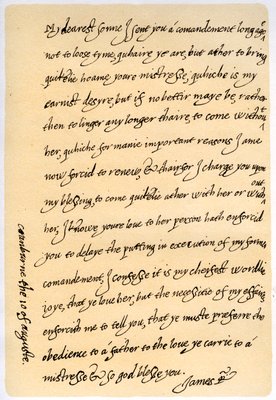 My dearest sonne I sent you a comandement long agoe
not to loose tyme, quhaire ye are, but ather to bring
quiklie hoame youre mistresse, quhiche is my
earnist desyre, but if no bettir maye be, rather
then to linger any longer thaire, to come without
her, quhiche for manie important reasons I ame
now forcid to renew, & thairfor I charge you upon
my blessing, to come quiklie ather with her or without
her, I know youre love to her person hath enforcid
you to delaye the putting in execution of my former
comandement, I confesse it is my cheifest worldlie
joye, that ye love her, but the necessitie of my effaires
enforcith me to tell you, that ye muste preferre the
obedience to a father to the love ye carrie to a
mistresse & so god blesse you.
James R
cranburne the 10 of auguste.